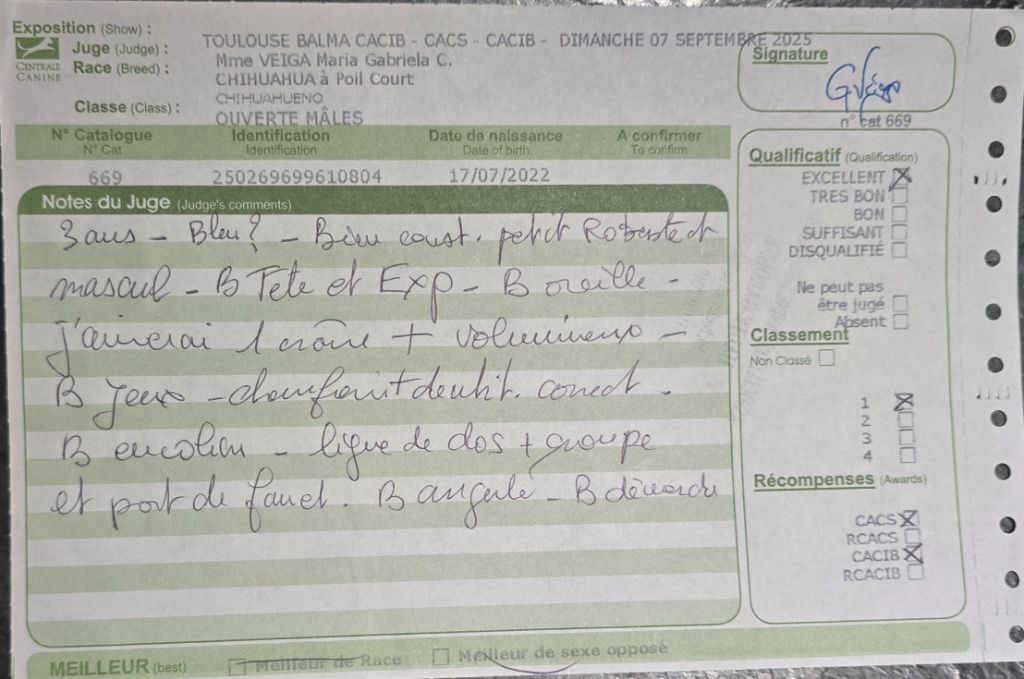 Exposition (Show) : TOULOUSE BALMA CACIB - CACS - CACIB - DIMANCHE 07 SEPTEMBRE 2025
CENTRALE CANINE
Juge (Judge) : Mme VEIGA Maria Gabriela C.
Race (Breed) : CHIHUAHUA à Poil Court
CHIHUAHUENO
Classe (Class) : OUVERTE MÂLES
Signature
G Veiga
n° cat 669
N° Catalogue Identification Date de naissance A confirmer
N° Cat Identification Date of birth To confirm
669 250269699610804 17/07/2022
Notes du Juge (Judge's comments)
3 ans - Bleu? - Bien const. petit Robuste et
mascul - B Tete et Exp - B oreille -
j'aimerai 1 crâne + volumineux -
B yeux - chanfrein + dentit. correct.
B encolure - ligne de dos + croupe
et port de fouet. B angulé - B démarche
Qualificatif (Qualification)
EXCELLENT
TRES BON
BON
SUFFISANT
DISQUALIFIÉ
Ne peut pas
être jugé
Absent
Classement
Non Classé
1
2
3
4
Récompenses (Awards)
CACS
RCACS
CACIB
RCACIB
MEILLEUR (best) Meilleur de Race Meilleur de sexe opposé